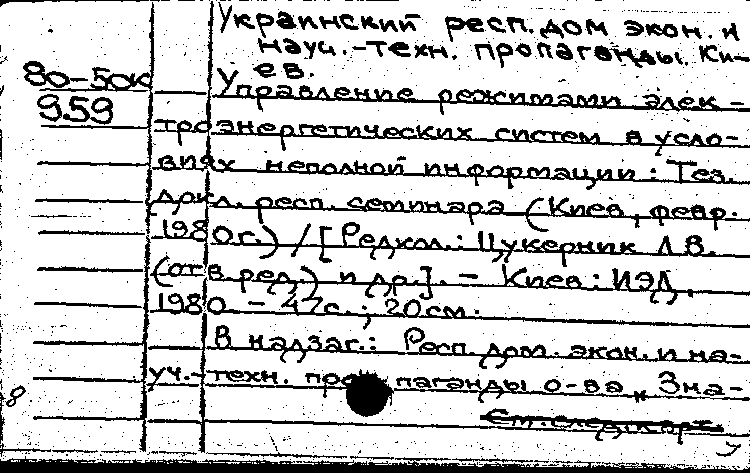 Украинский респ. дом экон. и
науч.-техн. пропаганды. Ки-
ев.
80-50к
959
Управление режимами элек-
троэнергетических систем в усло-
виях неполной информации: Тез.
докл. респ. семинара (Киев, февр.
1980г.) / [Редкол.: Цукерник Л.В.
(отв. ред.) и др.]. - Киев: ИЭД,
1980. - 47с.; 20см.
В надзаг.: Респ. дом. экон. и на-
уч.-техн. пропаганды о-ва „Зна-
См. след. карт.
8